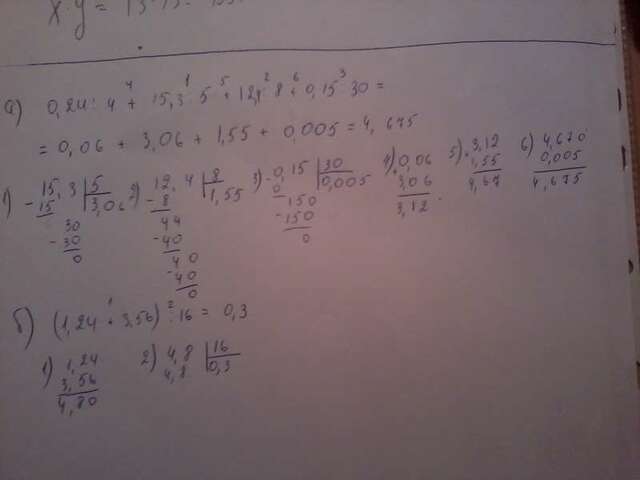 x·y =
а) 0,24 : 4 + 15,3 : 5 + 12,4 : 8 + 0,15 : 30 =
= 0,06 + 3,06 + 1,55 + 0,005 = 4,675
1) 15,3 | 5
15 | 3,06
30
- 30
0
2) 12,4 | 8
- 8 | 1,55
44
- 40
40
- 40
0
3) 0,15 | 30
0 | 0,005
150
- 150
0
4) 0,06
3,06
3,12
5) 3,12
1,55
4,67
6) 4,670
0,005
4,675
б) (1,24 + 3,56) : 16 = 0,3
1) 1,24
3,56
4,80
2) 4,8 | 16
4,8 | 0,3